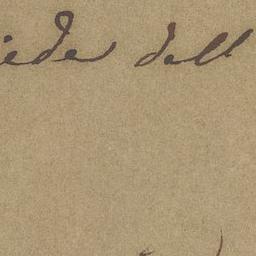 ieder dall